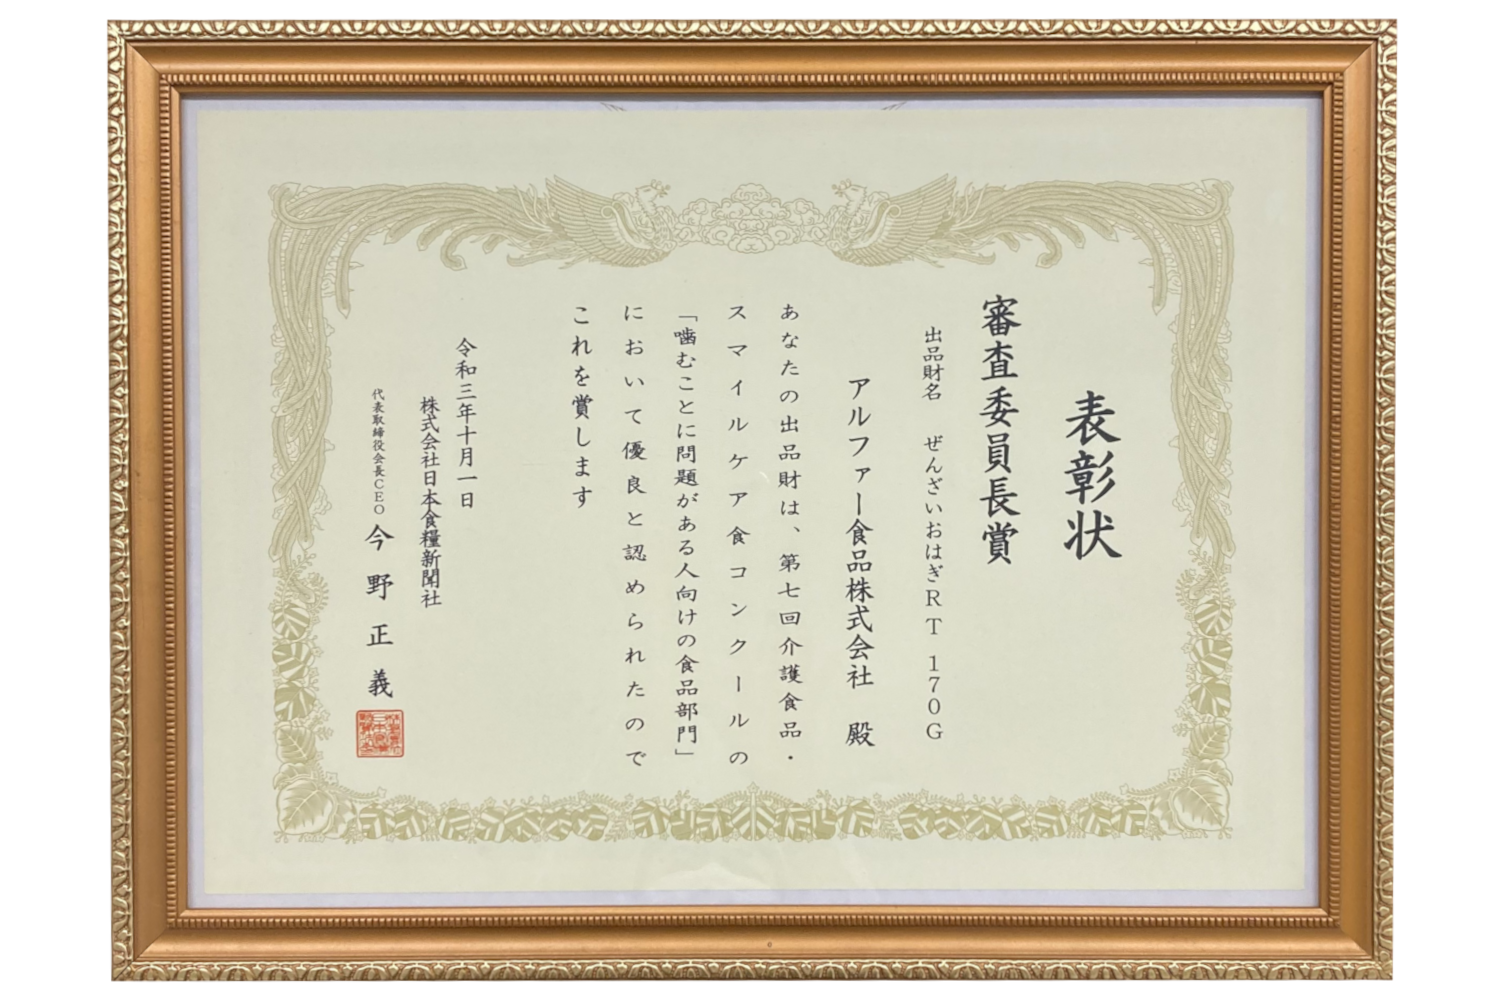 表彰状
審査委員長賞
出品財名　ぜんざいおはぎＲＴ 170Ｇ
アルファー食品株式会社　殿
あなたの出品財は、第七回介護食品・
スマイルケア食コンクールの
「噛むことに問題がある人向けの食品部門」
において優良と認められたので
これを賞します
令和三年十月一日
株式会社日本食糧新聞社
代表取締役会長CEO 今野正義